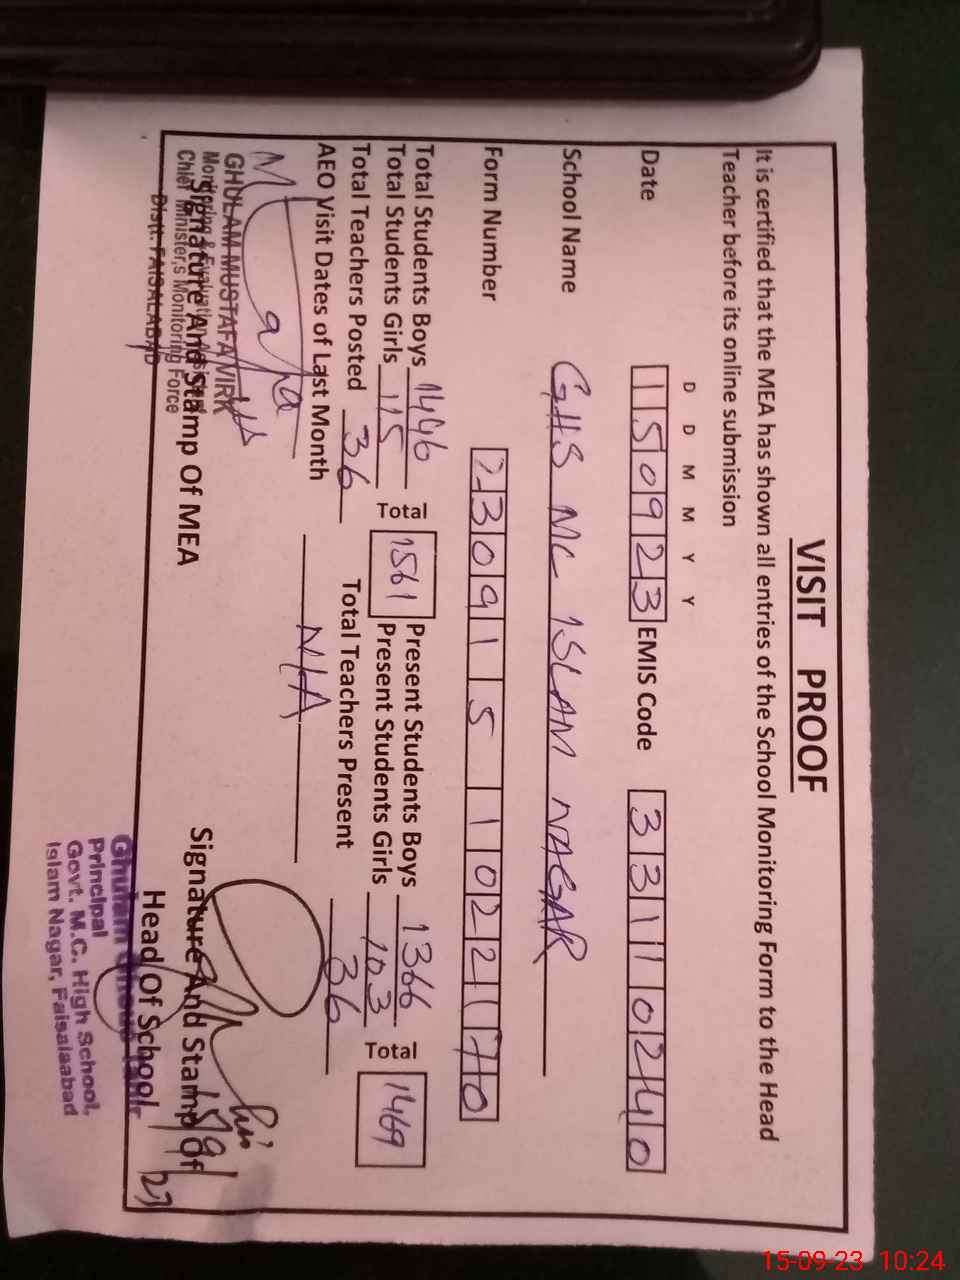 VISIT PROOF
It is certified that the MEA has shown all entries of the School Monitoring Form to the Head
Teacher before its online submission
D D M M Y Y
Date 150923 EMIS Code 33110240
School Name GHS MC ISLAM NAGAR
Form Number 230915102270
Total Students Boys 1446 Present Students Boys 1366
Total Students Girls 115 Total 1561 Present Students Girls 103 Total 1469
Total Teachers Posted 36 Total Teachers Present 36
AEO Visit Dates of Last Month N/A
GHULAM MUSTAFA VIRK
Monitoring & Evaluation Assistant
Signature And Stamp Of MEA
Chief Minister,s Monitoring Force
Distt. FAISALABAD
Signature And Stamp Of
Head Of School
Principal
Govt. M.C. High School,
Islam Nagar, Faisalaabad
15-09-23 10:24